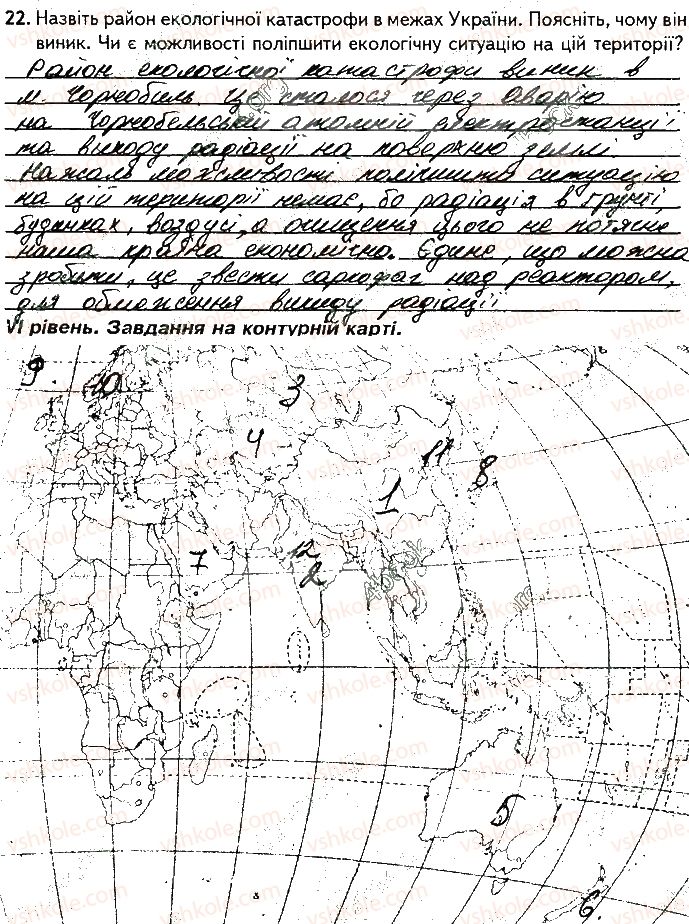 22. Назвіть район екологічної катастрофи в межах України. Поясніть, чому він
виник. Чи є можливості поліпшити екологічну ситуацію на цій території?
Район екологічної катастрофи виник в
м. Чорнобиль це сталося через Аварію
на Чорнобельській атомній електростанції
та викоду радіації на поверхню землі.
Нажаль можливости поліпшити ситуацію
на цій території немає, бо радіація в грунті,
будинках, воздусі, а очищення цього не потягне
наша країна економічно. Єдине, що можна
зробити, це звести саркофаг над реактором,
для обможення викиду радіації
VI рівень. Завдання на контурній карті.
9 10 3
4 11 8
1
7 12
2
5
6